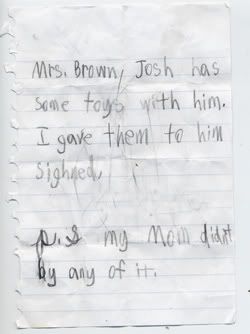 Mrs. Brown, Josh has
some toys with him.
I gave them to him
sighned,
p.s my Mom didnt
by any of it.